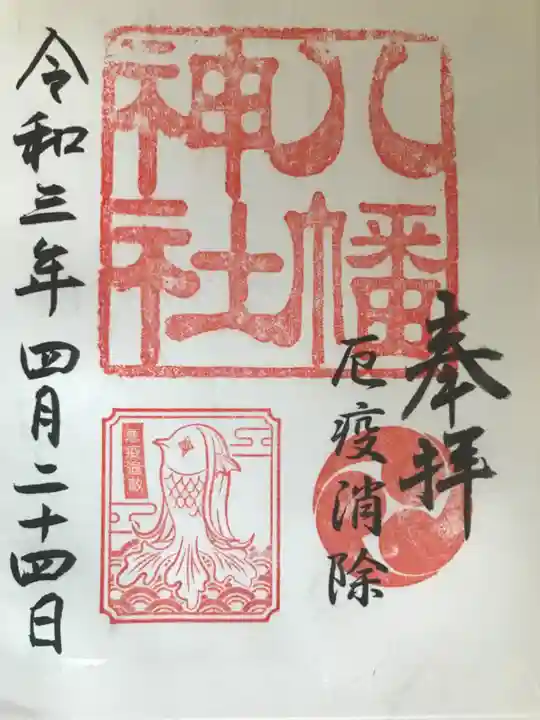 奉拝
厄疫消除
八幡
神社
悪疫退散
令和三年四月二十四日